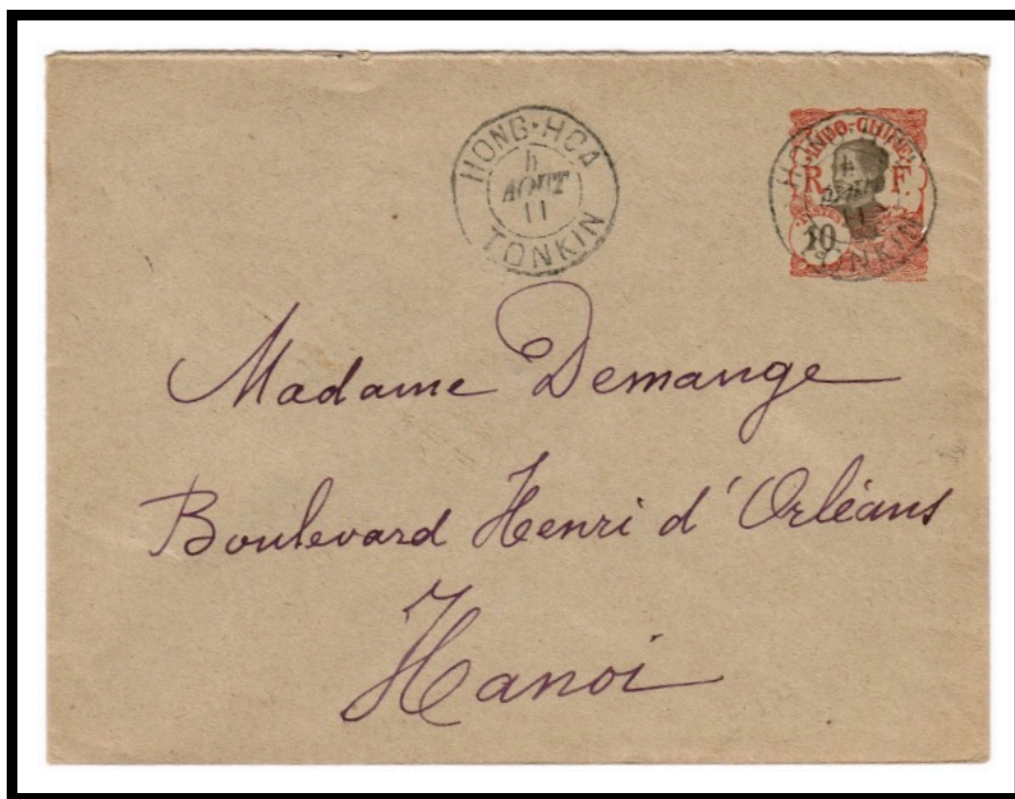 HONG-HOA
4
AOUT
11
TONKIN
INDO-CHINE
R F
POSTES
10
4
AOUT
11
TONKIN
Madame Demange
Boulevard Henri d'Orléans
Hanoi